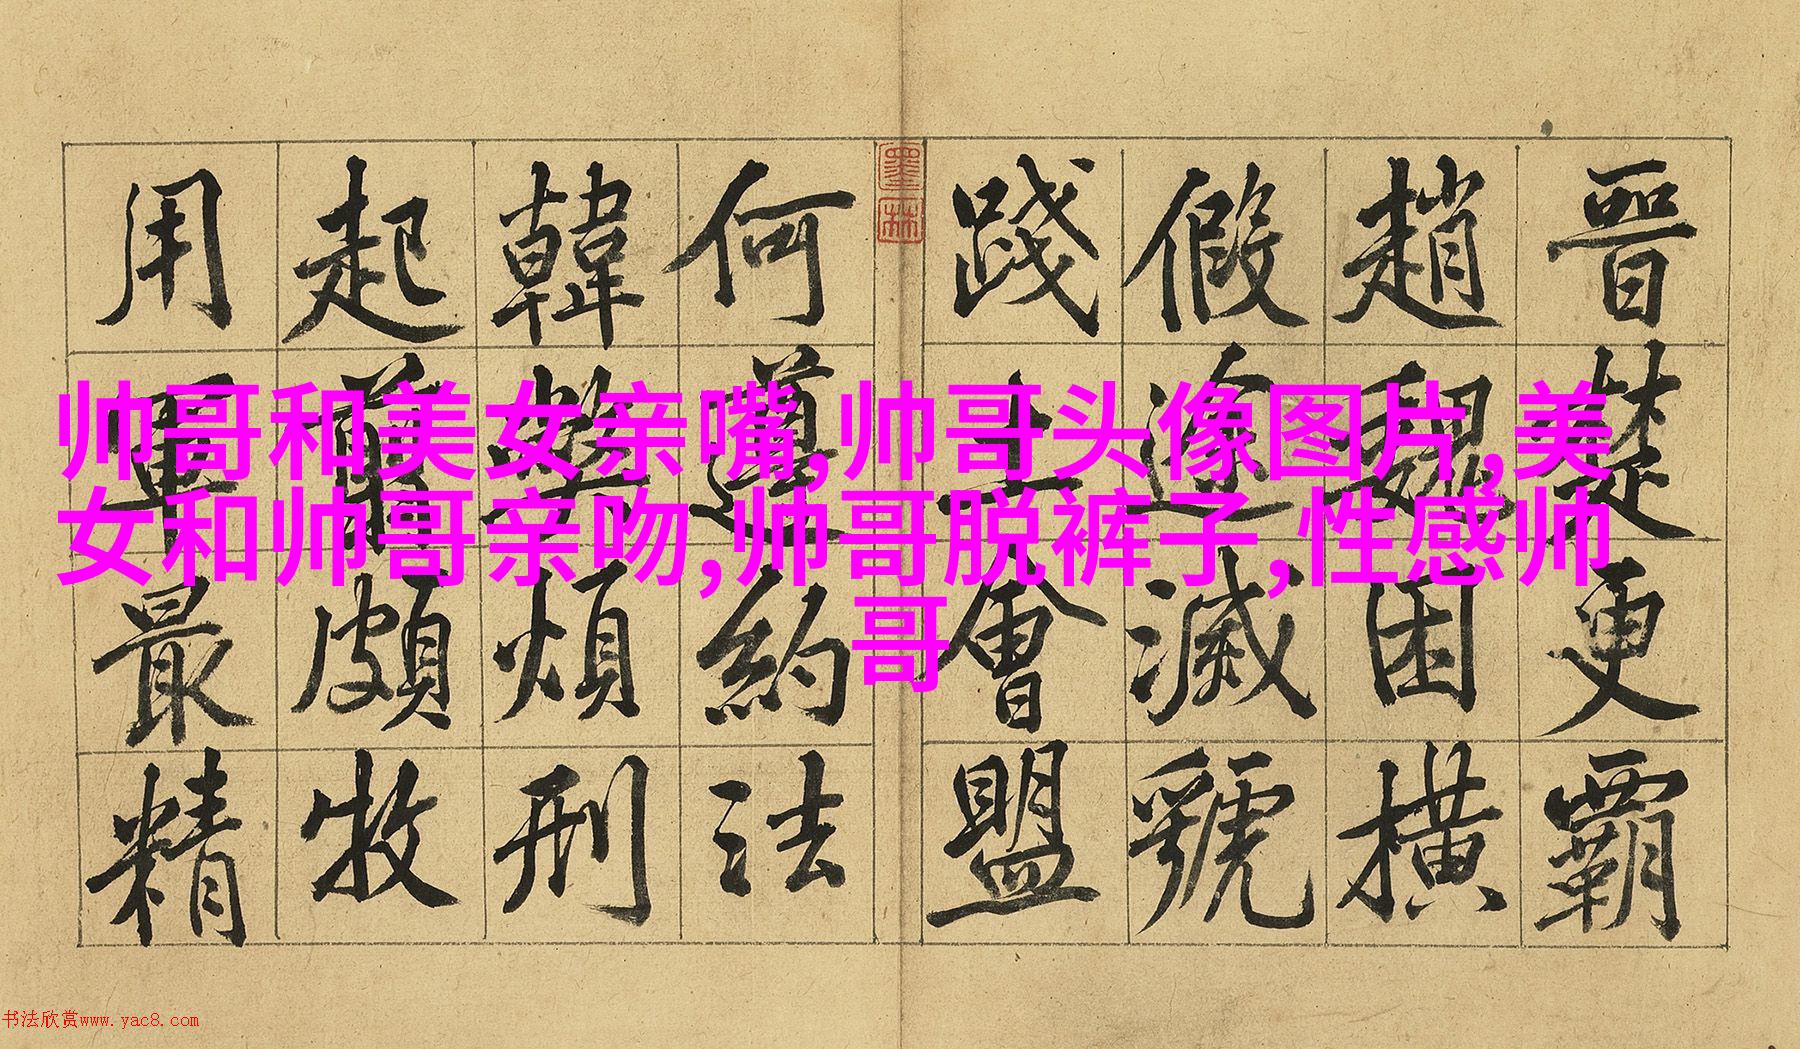 晉楚更霸
趙魏困橫
假途滅虢
踐土會盟
墨林
何遵約法
韓弊煩刑
起翦頗牧
用軍最精
帅哥和美女亲嘴,帅哥头像图片,美
女和帅哥亲吻,帅哥脱裤子,性感帅
哥
书法欣赏www.yac8.com